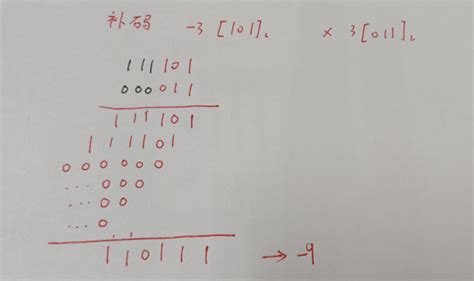 补码 -3 [101]₂ × 3 [011]₂
111101
000011
111101
111101
000000
... 000
... 00
... 0
110111 → -9